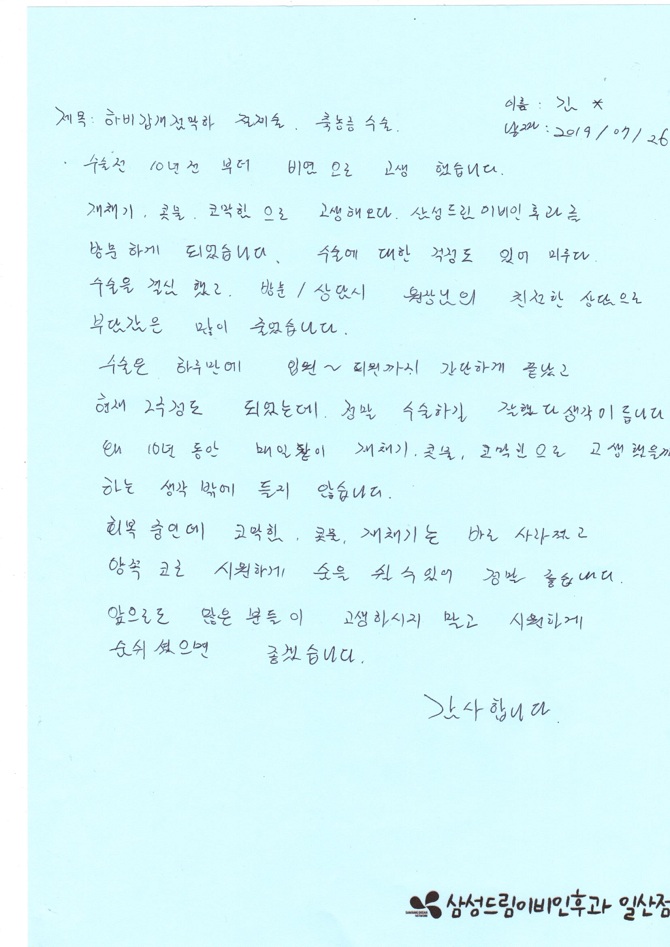 이름 : 김 *
제목 : 하비갑개점막하 절제술. 축농증 수술.
날짜 : 2019/07/26
· 수술전 10년전 부터 비염으로 고생 했습니다.
재채기. 콧물. 코막힘으로 고생해오다. 삼성드림이비인후과를
방문하게 되었습니다. 수술에 대한 걱정도 있어 미루다.
수술을 결심 했고. 방문/상담시 원장님의 친절한 상담으로
부담감은 많이 줄었습니다.
수술은 하루만에 입원~퇴원까지 간단하게 끝났고
현재 2주정도 되었는데. 정말 수술하길 잘했다 생각이 듭니다
왜 10년 동안 매일같이 재채기. 콧물. 코막힘으로 고생했을까
하는 생각 밖에 들지 않습니다.
회복 중인데 코막힘. 콧물. 재채기는 바로 사라졌고
양쪽 코로 시원하게 숨을 쉴 수 있어 정말 좋습니다.
앞으로도 많은 분들이 고생하시지 말고 시원하게
숨쉬셨으면 좋겠습니다.
감사합니다.
삼성드림이비인후과 일산점